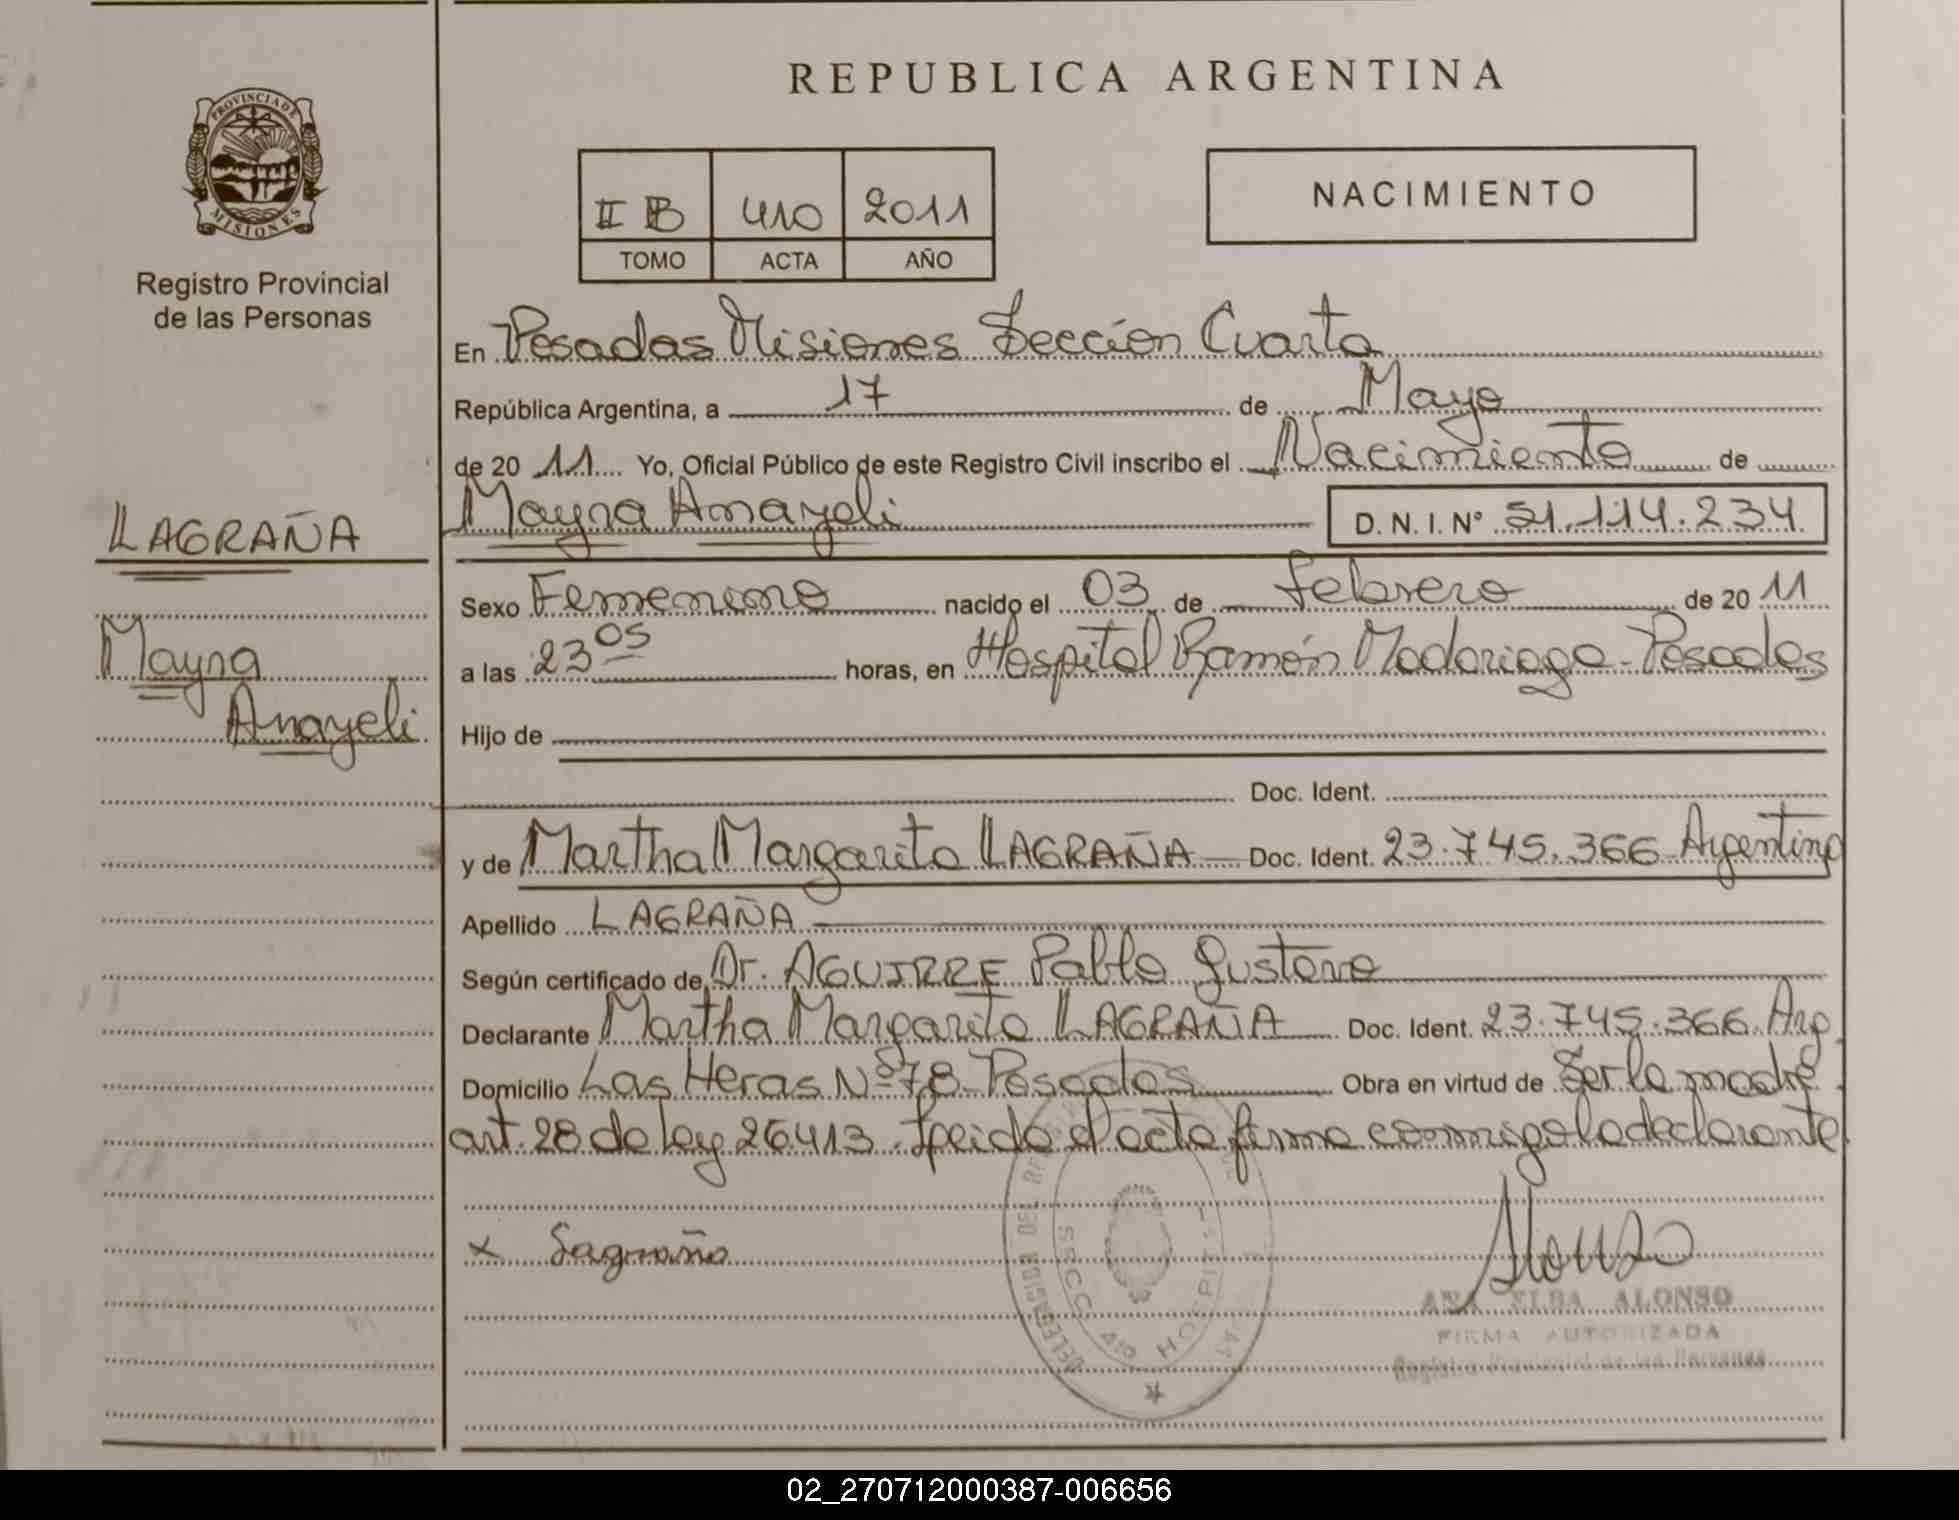 REPUBLICA ARGENTINA
PROVINCIA DE
MISIONES
Registro Provincial
de las Personas
II B 410 2011
TOMO ACTA AÑO
NACIMIENTO
En Posadas Misiones Sección Cuarta
República Argentina, a 17 de Mayo
de 20 11 Yo, Oficial Público de este Registro Civil inscribo el Nacimiento de
Mayra Anayeli D. N. I. Nº 51.114.234
LAGRAÑA
Mayra
Anayeli
Sexo Femenino nacido el 03 de febrero de 20 11
a las 23 05 horas, en Hospital Ramón Madariaga - Posadas
Hijo de
Doc. Ident.
y de Martha Margarita LAGRAÑA Doc. Ident. 23.745.366 Argentina
Apellido LAGRAÑA
Según certificado de Dr. AGUIRRE Pablo Gustavo
Declarante Martha Margarita LAGRAÑA Doc. Ident. 23.745.366 Arg.
Domicilio Las Heras Nº 78 Posadas Obra en virtud de Ser la madre
art. 28 de ley 26.413. Leida el acta firma conmigo la declarante
x Lagraña
Alonso
ANA ELBA ALONSO
FIRMA AUTORIZADA
Registro Provincial de las Personas
02_270712000387-006656